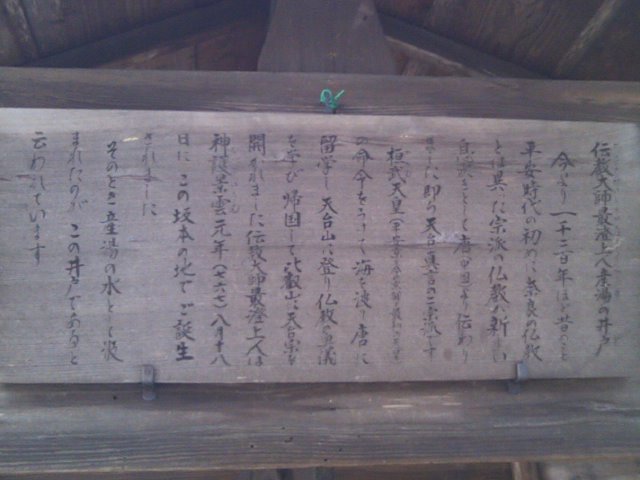 伝教大師最澄上人産湯の井戸
今より一千二百年ほど昔のこと
平安時代の初めに奈良の仏教
とは異った宗派の仏教が新しい
息吹きとして唐(中国)より伝わり
ました即ち天台真言の二宗派です
桓武天皇(平安京
の命令をうけて海を渡り唐に
留学し天台山に登り仏教の奥儀
を学び帰国して比叡山に天台宗を
開かれました伝教大師最澄上人は
神護景雲元年(七六七)八月十八
日にこの坂本の地でご誕生
されました
そのとき産湯の水として汲
まれたのがこの井戸であると
云われています